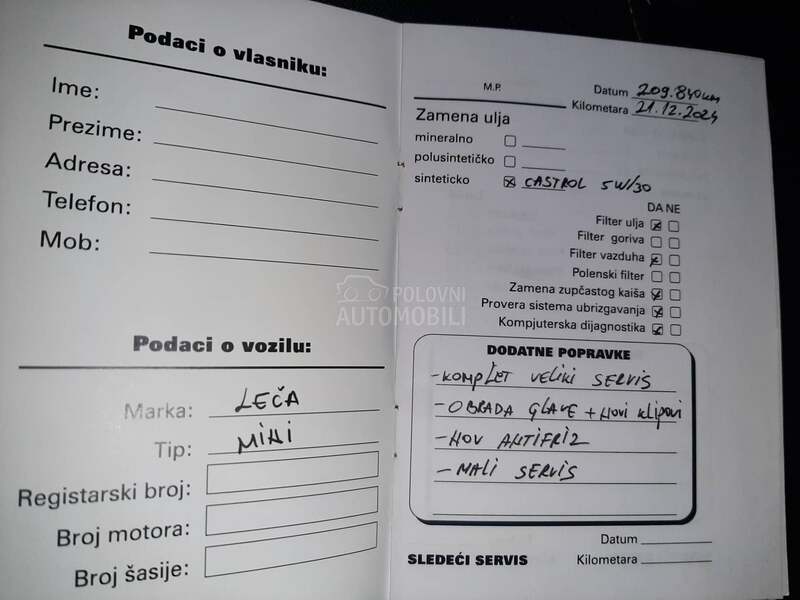 Podaci o vlasniku:
Ime:
Prezime:
Adresa:
Telefon:
Mob:
Podaci o vozilu:
Marka: LEČA
Tip: MINI
Registarski broj:
Broj motora:
Broj šasije:
M.P.
Datum 209.840km
Kilometara 21.12.2024
Zamena ulja
mineralno
polusintetičko
sinteticko CASTROL 5W/30
DA NE
Filter ulja
Filter goriva
Filter vazduha
Polenski filter
Zamena zupčastog kaiša
Provera sistema ubrizgavanja
Kompjuterska dijagnostika
DODATNE POPRAVKE
-KOMPLET VELIKI SERVIS
-OBRADA GLAVE + NOVI KLIPOVI
-NOV ANTIFRIZ
-MALI SERVIS
Datum
SLEDEĆI SERVIS
Kilometara
POLOVNI
AUTOMOBILI